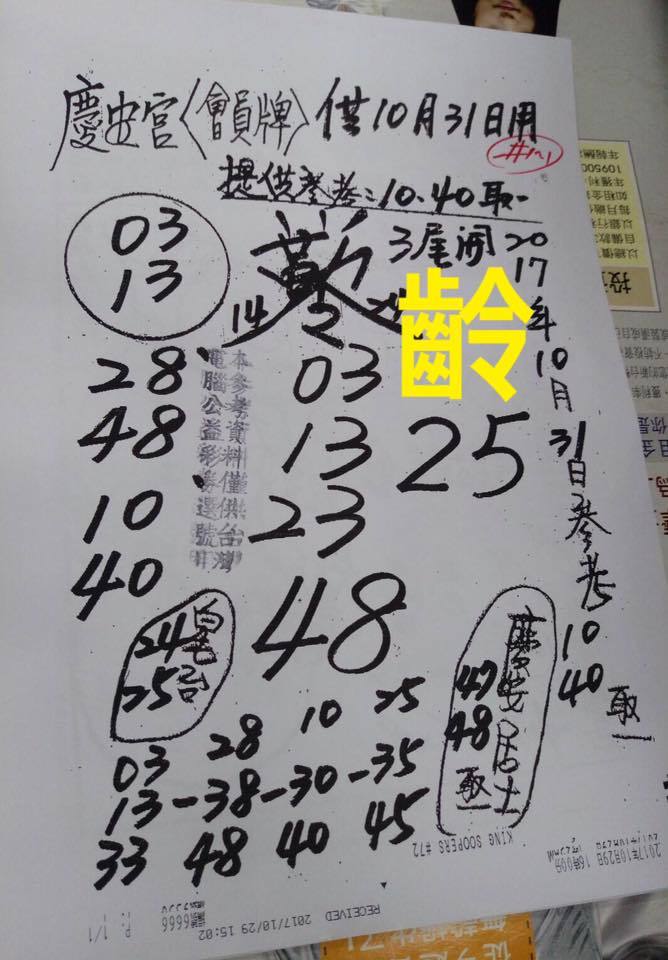 慶安宮〈會員牌〉供10月31日用
提供參考:10.40取一
03
13
3尾開
2017年10月31日參考10 40 取一
14
齡
28
48
10
40
本參考資料僅供台灣
電腦公益彩券選號用
03
13
23
25
48
24
25
慶安居士
47
48
取一
03 28 10 25
13-38-30-35
33 48 40 45
KING SOOPERS #72
2017年10月29日 16時00分
RECEIVED 2017/10/29 15:02
P. 1/1
109500